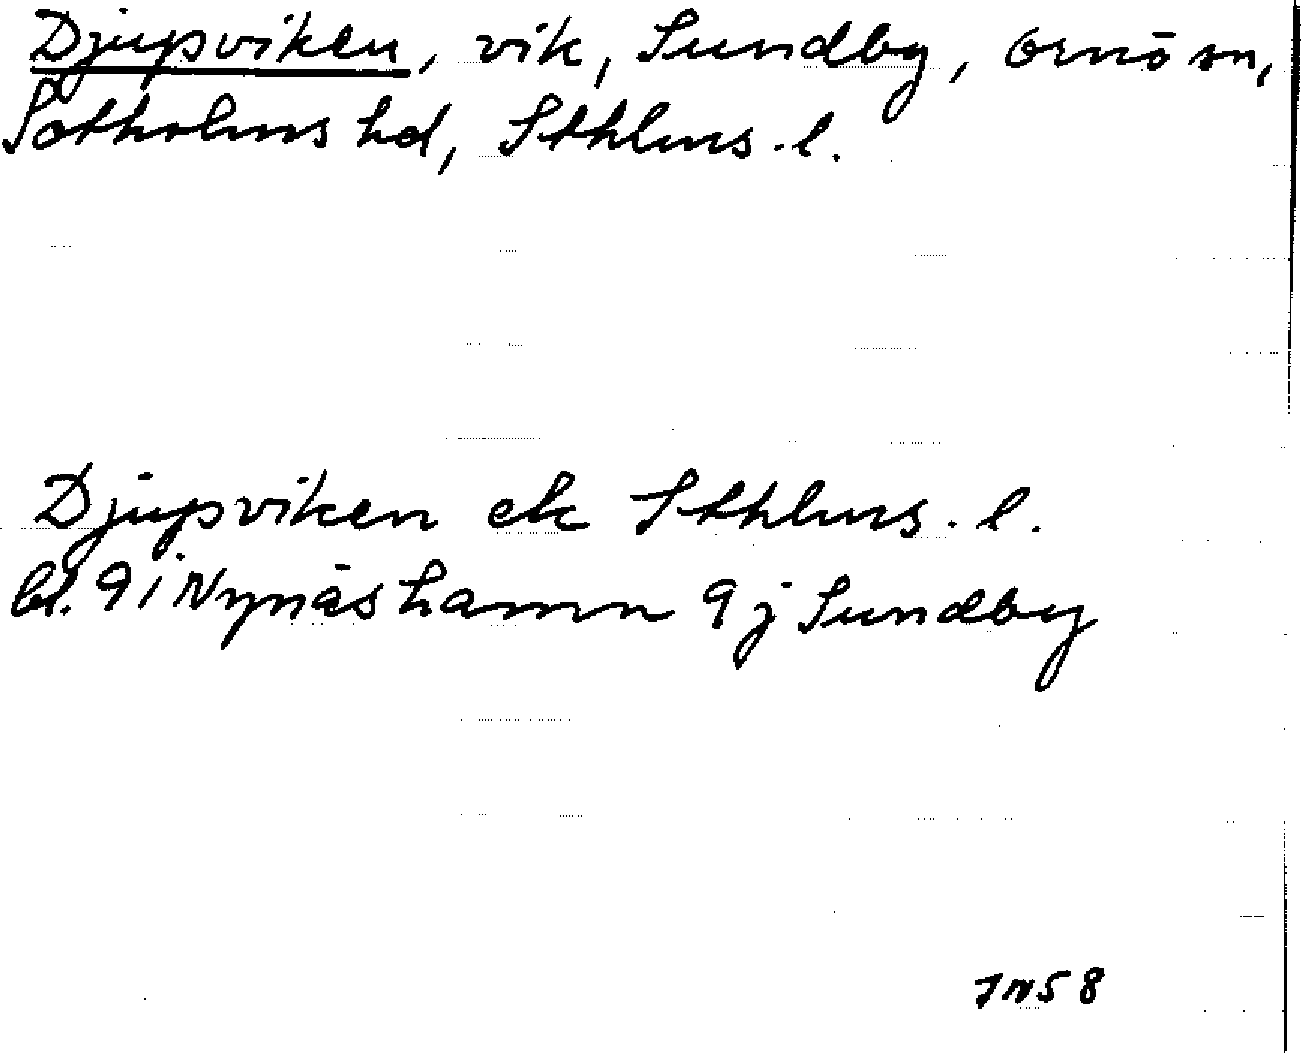 Djupviken, vik, Sundby, Ornö sn,
Sotholms hd, Sthlms. l.
Djupviken ek Sthlms. l.
bl. 9i Nynäshamn 9j Sundby
JN58